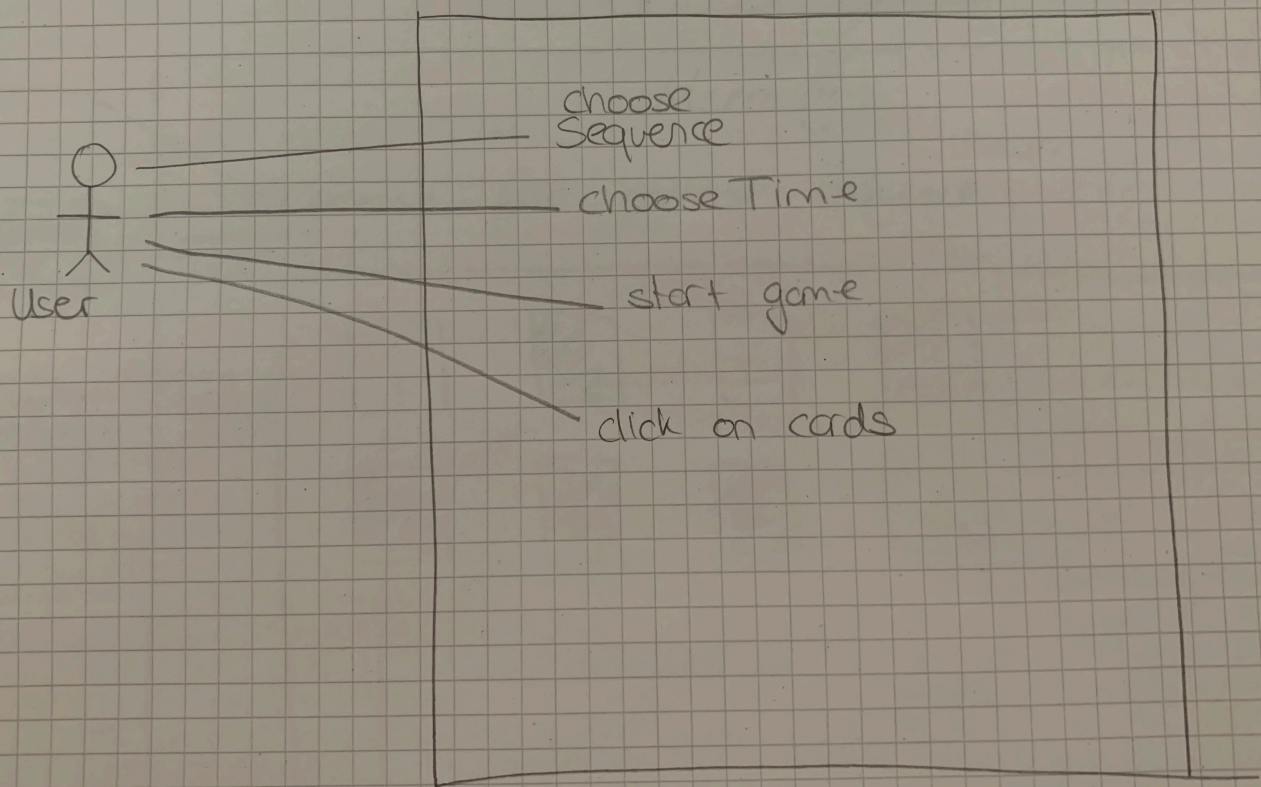 choose
Sequence
choose Time
start game
click on cards
User